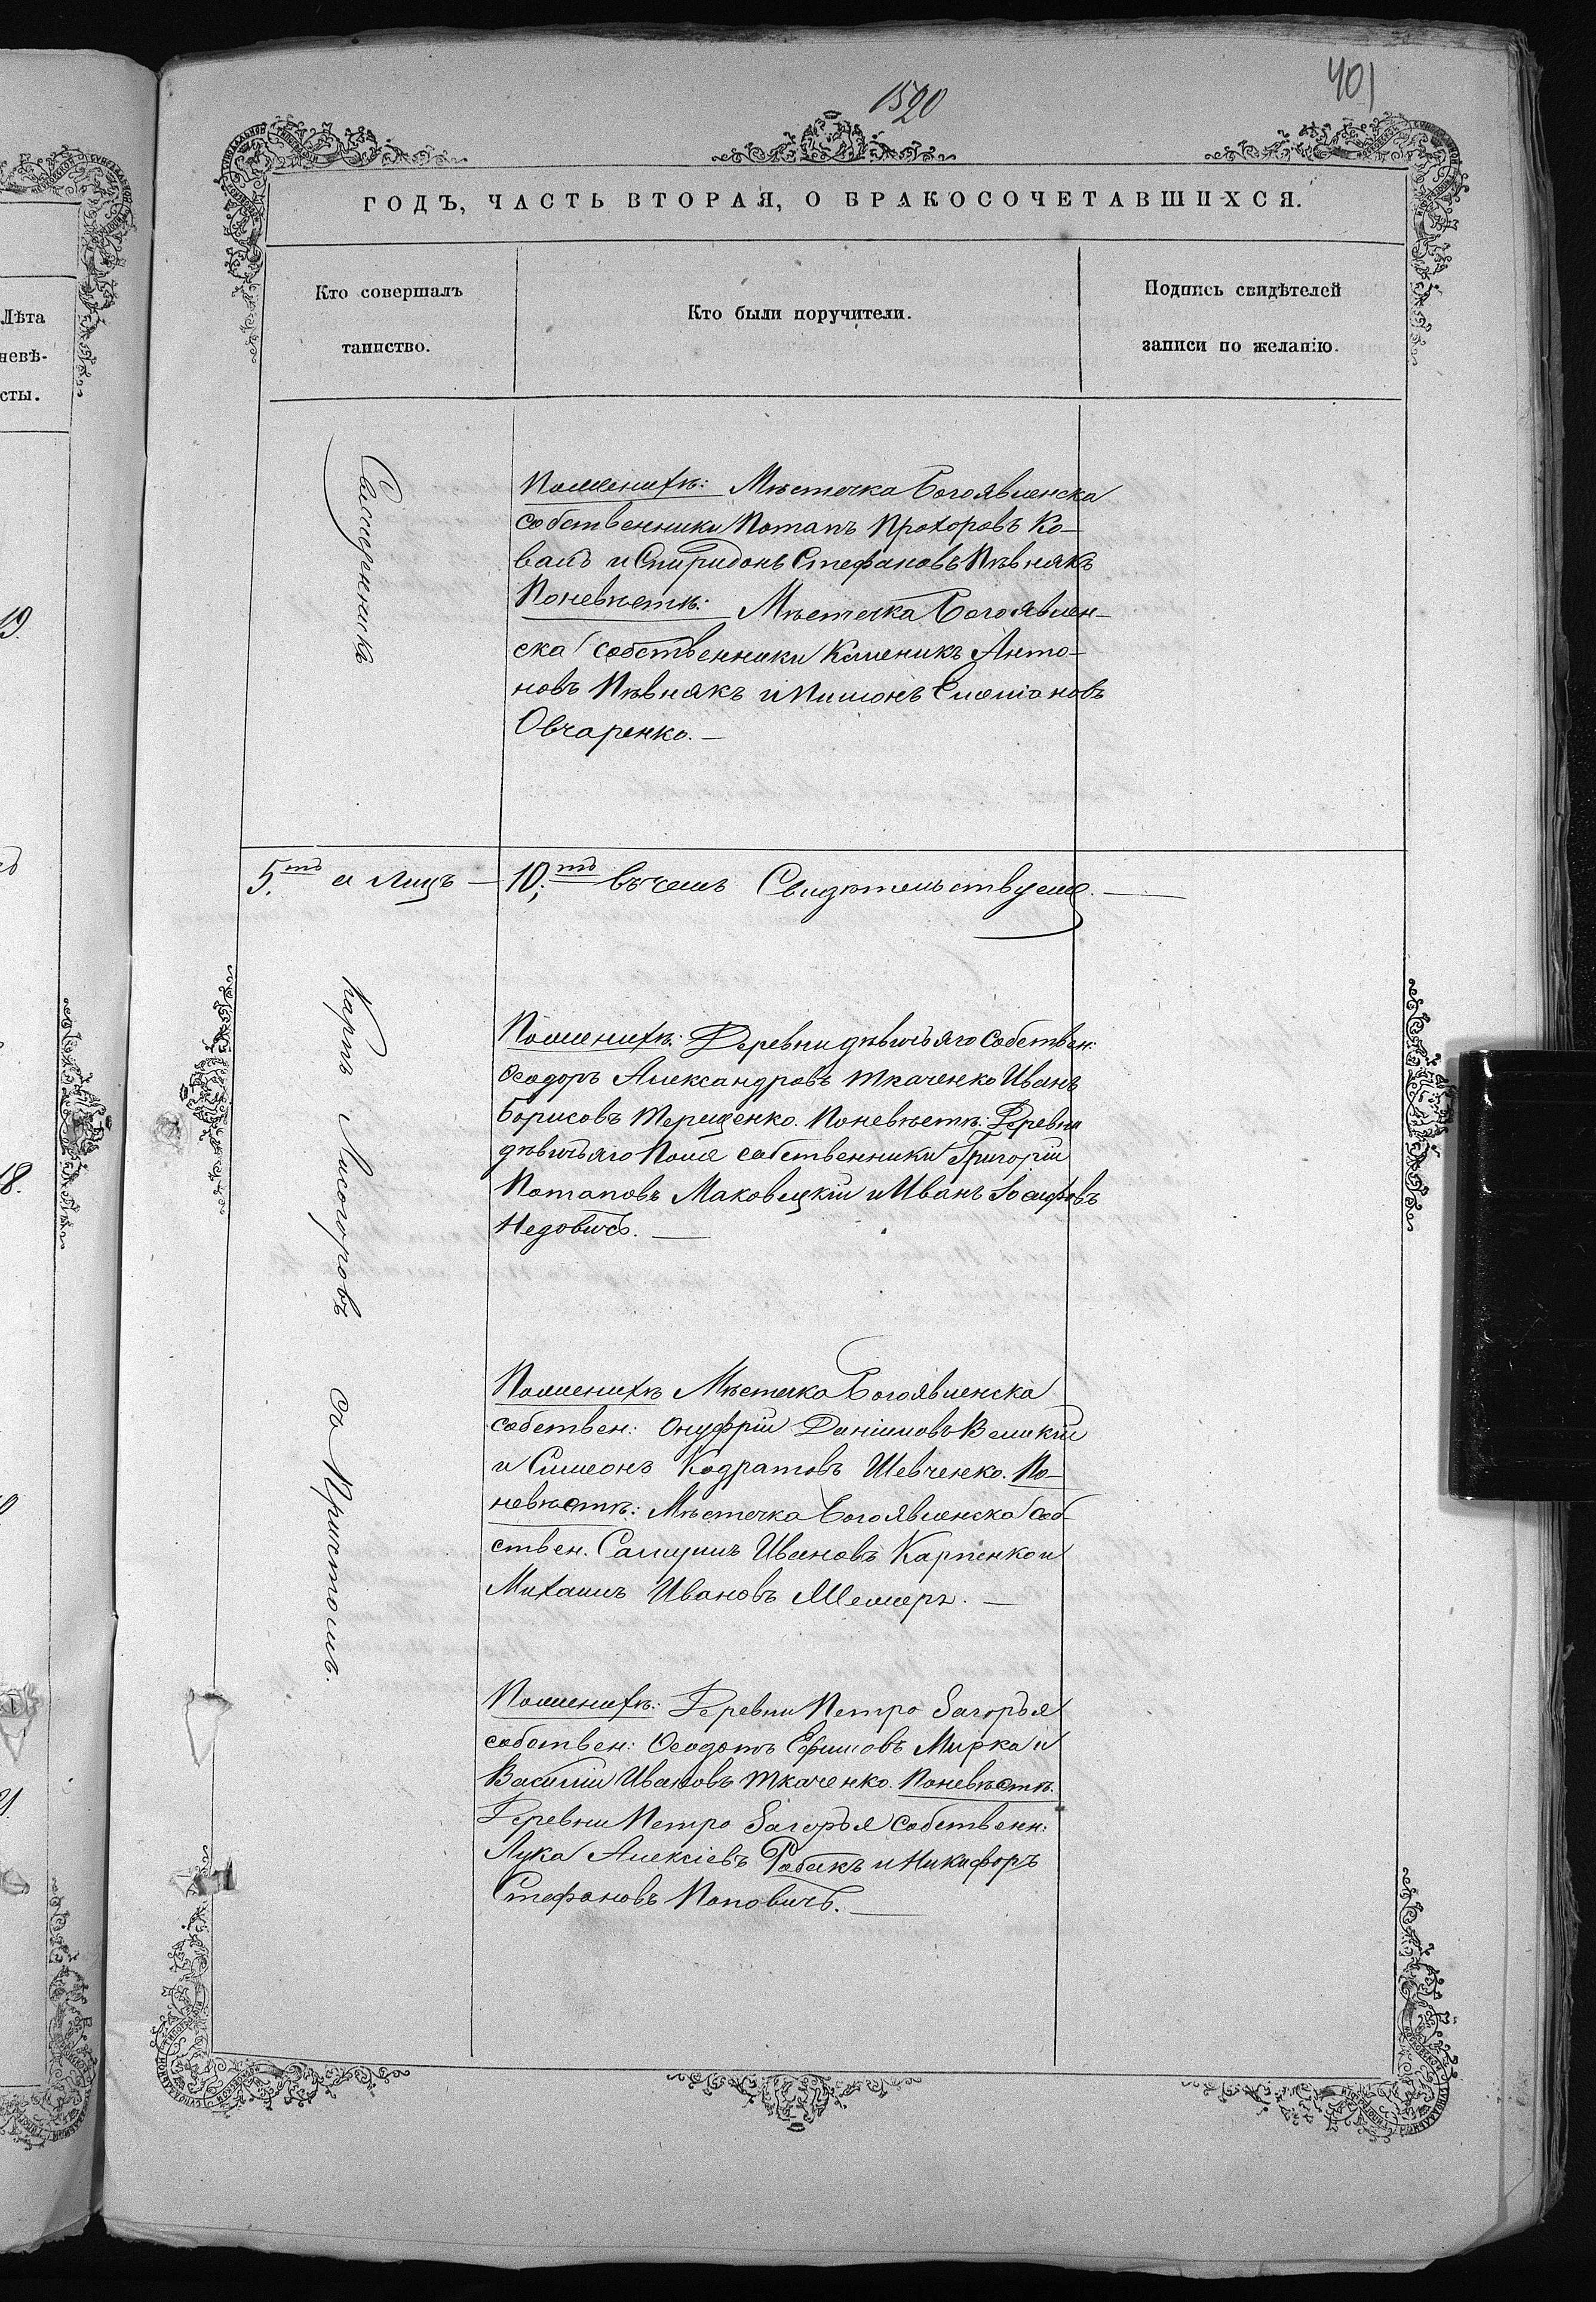 1520
401
ГОДЪ, ЧАСТЬ ВТОРАЯ, О БРАКОСОЧЕТАВШИХСЯ.
Лѣта
невѣ-
сты.
Кто совершалъ
таинство.
Кто были поручители.
Подпись свидѣтелей
записи по желанію.
19.
18.
Поженихѣ: Мѣстечка Богоявленска
собственники Потапъ Прохоровъ Ко-
валь и Спиридонъ Стефановъ Пѣвнякъ
Поневѣстѣ: Мѣстечка Богоявлен-
ска собственники Климикъ Анто-
новъ Пѣвнякъ и Пимонъ
Овчаренко. —
5.тъ а лицъ — 10;тъ въ чемъ Свидѣтельствуемъ. —
Карпъ Лисогоровъ съ Причтомъ.
Поженихѣ: Деревни дѣвичьяго собствен:
Ѳеодоръ Александровъ Ткаченко Иванъ
Борисовъ Терещенко. Поневѣстѣ: Деревни
дѣвичьяго Поля собственники Григорій
Потаповъ Маковецкій и Иванъ Іосифовъ
Недобичъ. —
Поженихѣ Мѣстечка Богоявленска
собствен: Онуфрій Даніиловъ Великій
и Симеонъ Кодратовъ Шевченко. По-
невѣстѣ: Мѣстечка Богоявленска соб-
ствен. Самуилъ Ивановъ Карпенко и
Михаилъ Ивановъ —
Поженихѣ: Деревни Петро Загорья
собствен: Ѳеодотъ Ефимовъ Мирка и
Василій Ивановъ Ткаченко. Поневѣстѣ.
Деревни Петро Загорья собственн:
Лука Алексіевъ Рабакъ и Никифоръ
Стефановъ Поповичъ. —